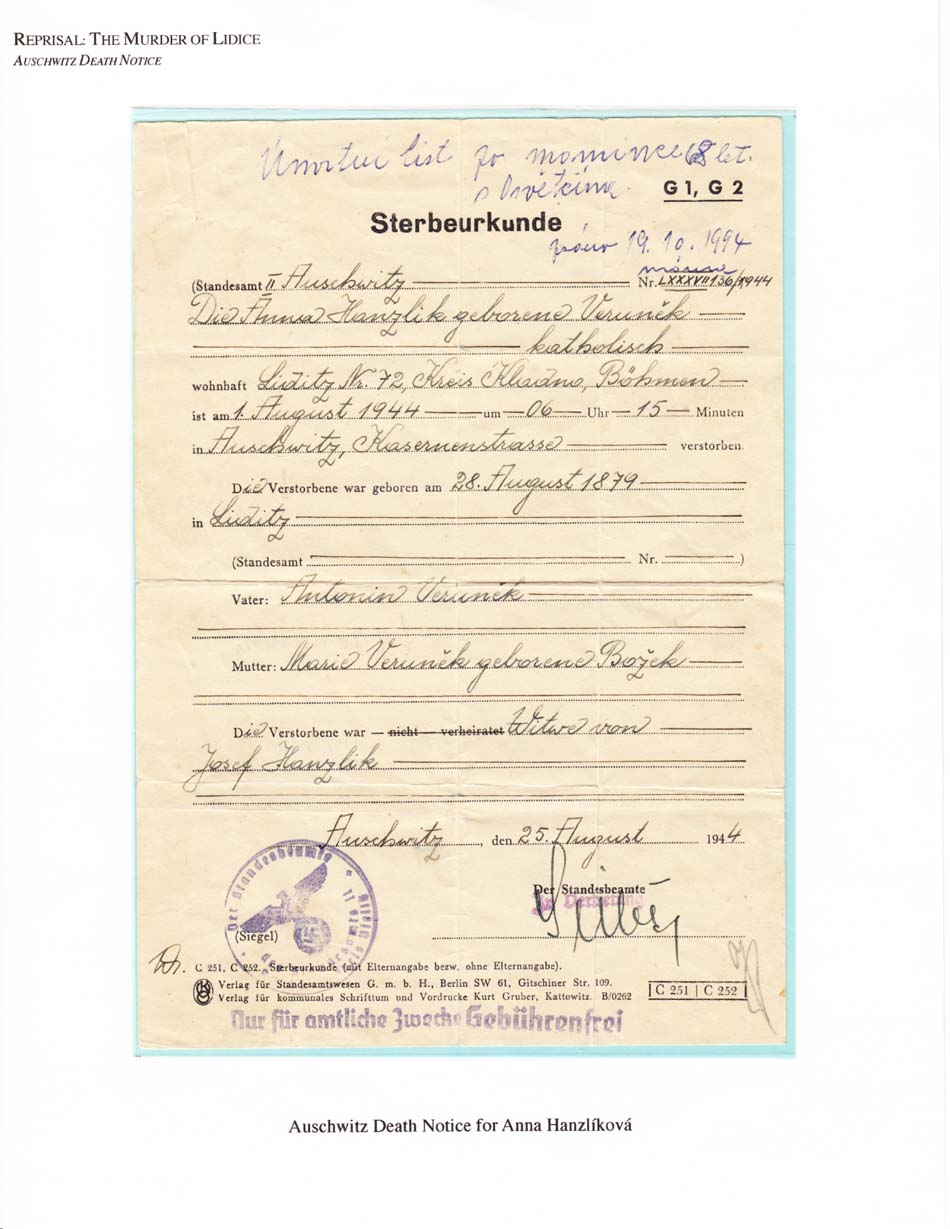 REPRISAL: THE MURDER OF LIDICE
AUSCHWITZ DEATH NOTICE
Úmrtní list po mamince let.
z Osvětima.
G 1, G 2
Sterbeurkunde
19. 10. 1994
(Standesamt II Auschwitz Nr. LXXXVII 136/1944
Die Anna Hanzlik geborene Veruněk
katholisch
wohnhaft Liditz Nr. 72, Kreis Kladno, Böhmen
ist am 1. August 1944 um 06 Uhr 15 Minuten
in Auschwitz, Kasernenstrasse verstorben.
Die Verstorbene war geboren am 28. August 1879
in Liditz
(Standesamt Nr. )
Vater: Antonin Veruněk
Mutter: Marie Veruněk geborene Božek
Die Verstorbene war — nicht — verheiratet Witwe von
Josef Hanzlik
Auschwitz, den 25. August 1944
Der Standesbeamte
Der Standesbeamte
(Siegel)
C 251, C 252. Sterbeurkunde (mit Elternangabe bezw. ohne Elternangabe).
Verlag für Standesamtswesen G. m. b. H., Berlin SW 61, Gitschiner Str. 109.
Verlag für kommunales Schrifttum und Vordrucke Kurt Gruber, Kattowitz. B/0262
C 251 | C 252
Nur für amtliche Zwecke Gebührenfrei
Auschwitz Death Notice for Anna Hanzlíková